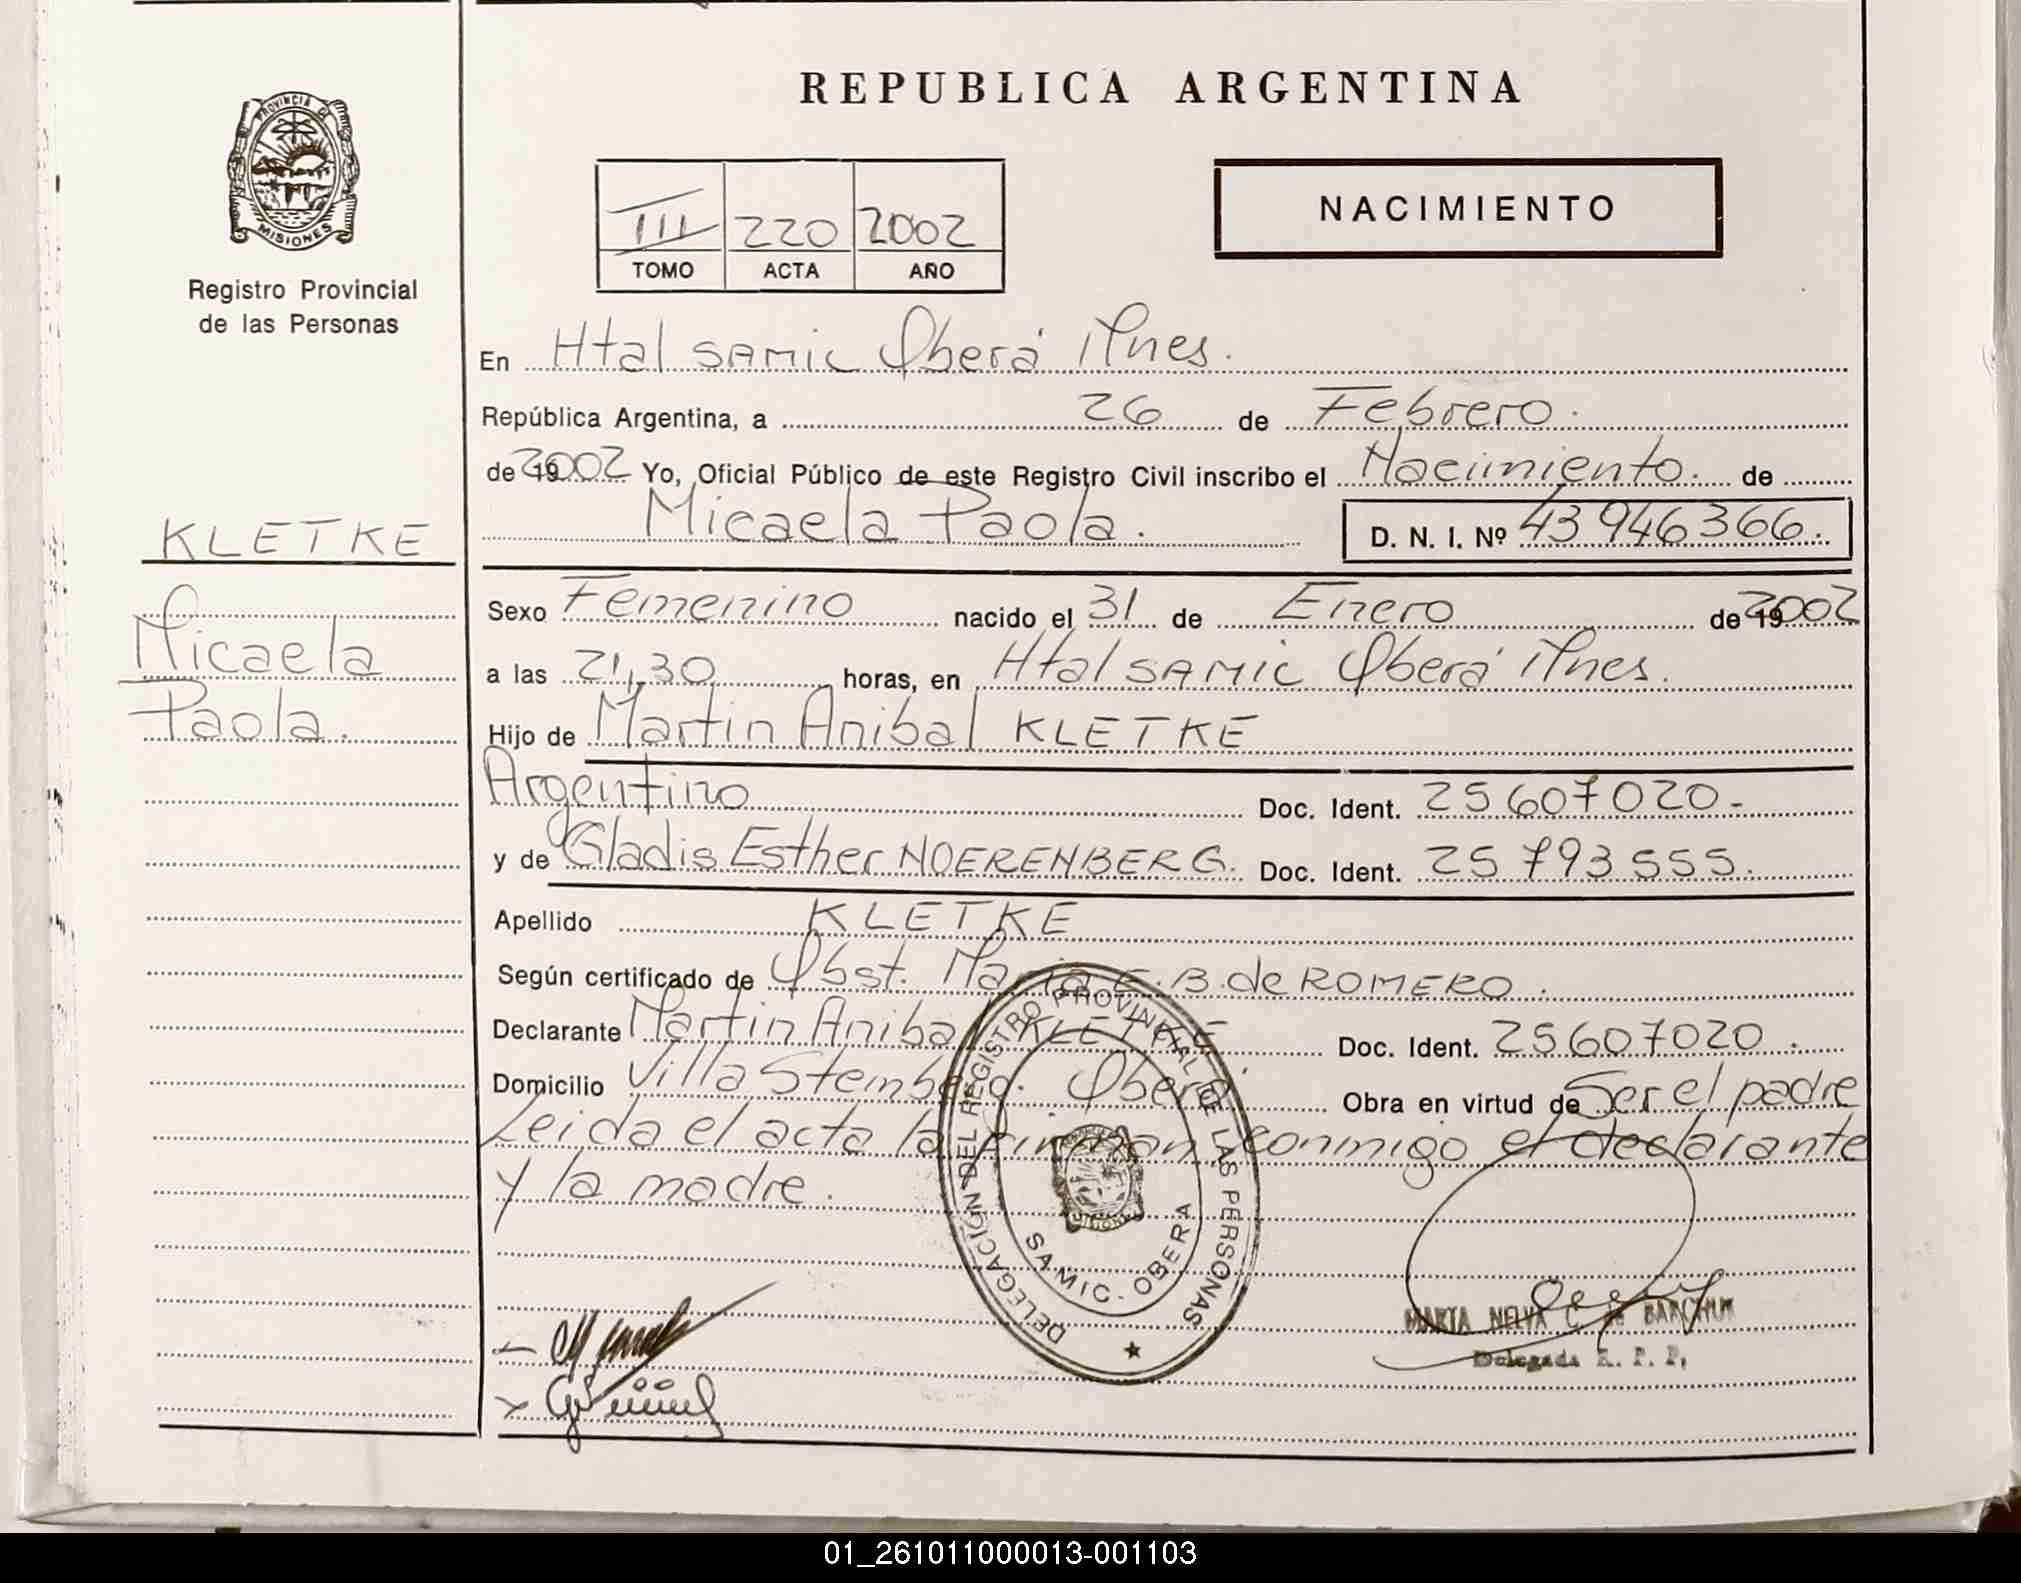 REPUBLICA ARGENTINA
PROVINCIA DE
MISIONES
Registro Provincial
de las Personas
NACIMIENTO
III 220 2002
TOMO ACTA AÑO
En Htal SAMIC Oberá Mnes.
República Argentina, a 26 de Febrero.
de 2002 Yo, Oficial Público de este Registro Civil inscribo el Nacimiento. de
Micaela Paola. D. N. I. Nº 43946366.
KLETKE
Micaela
Paola.
Sexo Femenino nacido el 31 de Enero de 2002
a las 21,30 horas, en Htal SAMIC Oberá Mnes.
Hijo de Martin Anibal KLETKE
Argentino Doc. Ident. 25607020.-
y de Gladis Esther NOERENBERG. Doc. Ident. 25793555.
Apellido KLETKE
Según certificado de Obst. Maria E. B. de ROMERO.
Declarante Martin Anibal KLETKE Doc. Ident. 25607020.
Domicilio Villa Stemberg. Oberá Obra en virtud de Ser el padre
Leida el acta la firman conmigo el declarante
y la madre.
DELEGACIÓN DEL REGISTRO PROVINCIAL DE LAS PERSONAS
SAMIC - OBERA
MARTA NELVA C. de
Delegada R. P. P.
01_261011000013-001103